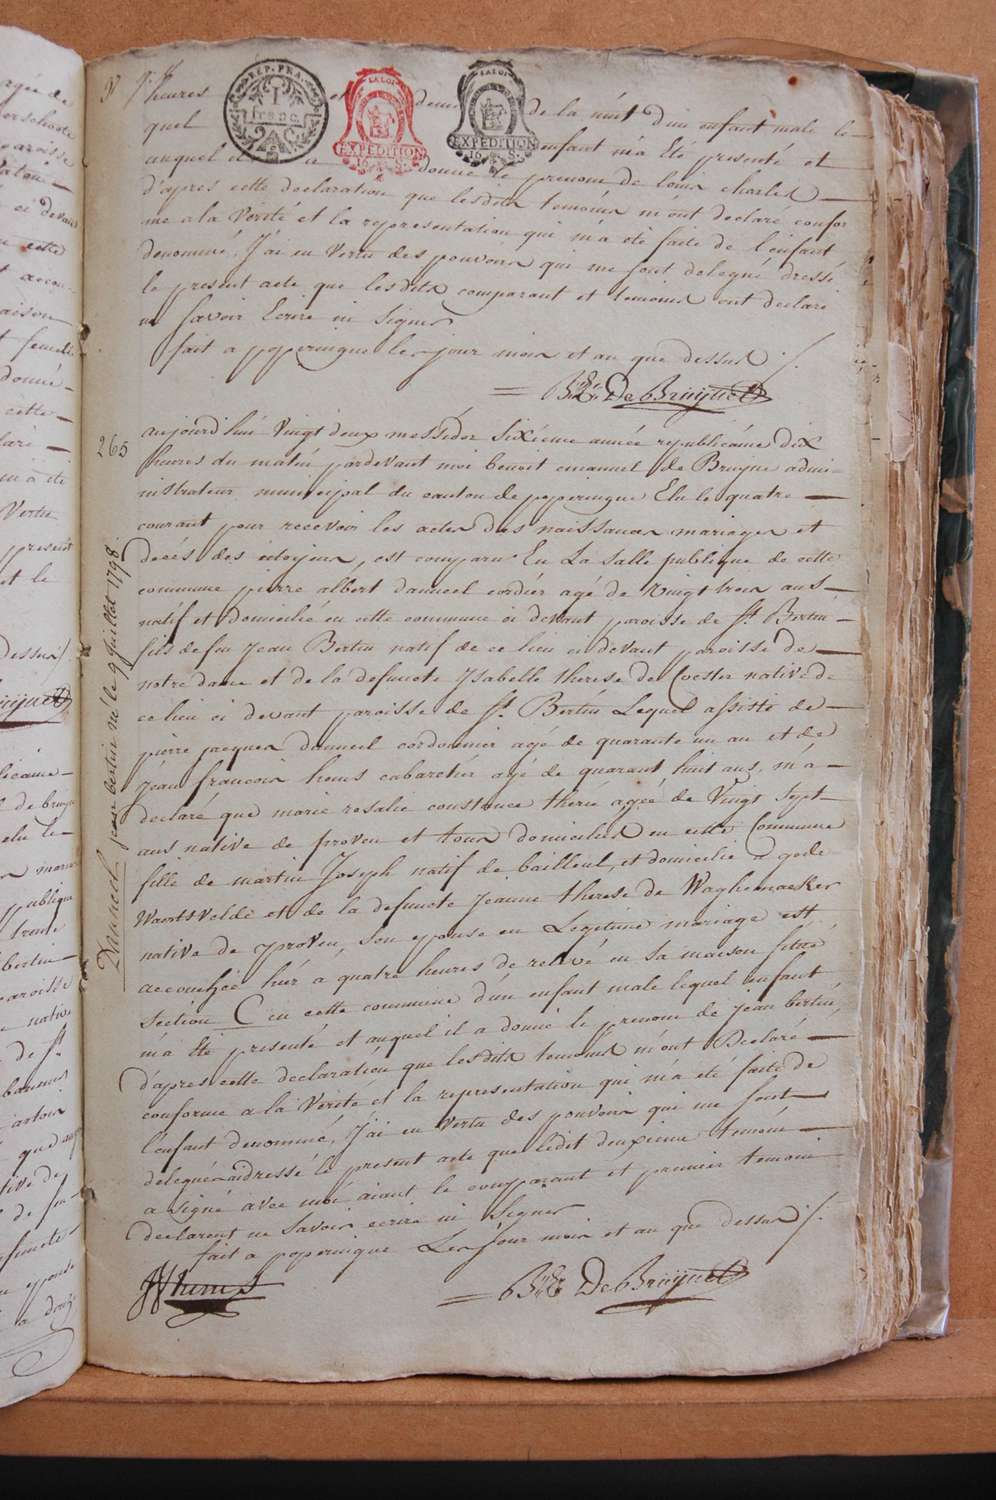 REP. FRA.
1
franc.
2 C.
LA LOI
EXPEDITION
LA LOI
EXPEDITION
heures et deux de la nuit d'un enfant male le
quel enfant m'a Eté presenté et
auquel il a donné le prenom de louis charles
d'apres cette declaration que lesdits temoins m'ont declaré confor
me a la Verité et la representation qui m'a eté faite de l'enfant
denommé, J'ai en Vertu des pouvoirs qui me sont delegué dressé
le present acte que lesdits comparant et temoins ont declaré
ne savoir Ecrire ni Signer
fait a poperingue les jour mois et an que dessus /.
= De Bruyne
265
aujourd'hui Vingt deux messidor Sixieme année republicaine dix
heures du matin pardevant moi benoit emanuel de Bruyne admi-
nistrateur municipal du canton de poperingue Elu le quatre
courant pour recevoir les actes des naissances mariages et
decés des citoyens, est comparu En La Salle publique de cette
commune pierre albert danneel cordier agé de Vingt trois ans
natif et domicilié en cette commune ci devant paroisse de St. Bertin
fils de feu Jean Bertin natif de ce lieu ci devant paroisse de
notre dame et de la defuncte Ysabelle therese de Coester native de
ce lieu ci devant paroisse de St. Bertin Lequel assisté de
pierre jacques danneel cordonnier agé de quarante un an et de
Jean francois hems cabaretier agé de quarant huit ans, m'a
declaré que marie rosalie constance agée de Vingt Sept
ans native de proven et tous domiciliés en cette Commune
fille de martin Joseph natif de bailleul, et domicilié a gode
Waertsvelde et de la defuncte Jeanne therese de Waghemaeker
native de proven, Son epouse en Legitime mariage est
accouchée hier a quatre heures de relevé en Sa maison Situé
Section C en cette commune d'un enfant male lequel enfant
m'a Eté presenté et auquel il a donné le prenom de jean bertin
d'apres cette declaration que lesdits temoins m'ont Declaré
conforme a la Verité et la representation qui m'a eté faite de
l'enfant denommé, J'ai en Vertu des pouvoirs qui me sont
delegués dressé le present acte que ledit deuxieme temoin
a Signé avec moi aiant le comparant et premier temoin
declarent ne Savoir ecrire ni Signer
fait a poperingue Les Jour mois et an que dessus /.
= De Bruyne
Danneel jean bertin né le 9 Juillet 1798.